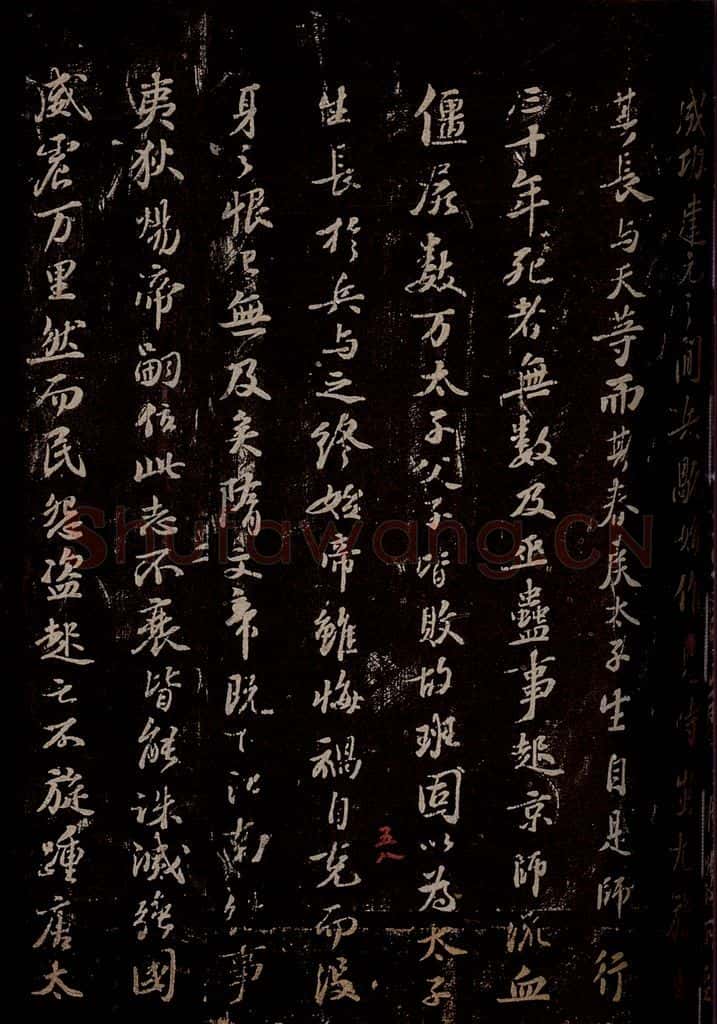 成功建元之間兵始作是時
其長与天等而其春戾太子生自是師行
三十年死者無數及巫蠱事起京師流血
僵屍數万太子父子皆敗故班固以為太子
生長於兵与之終始帝雖悔禍自克而没
身之恨已無及矣隋文帝既下江南事
夷狄煬帝嗣位此志不衰皆能誅滅強國
威震万里然而民怨盗起亡不旋踵唐太
五八
Shufawang.CN